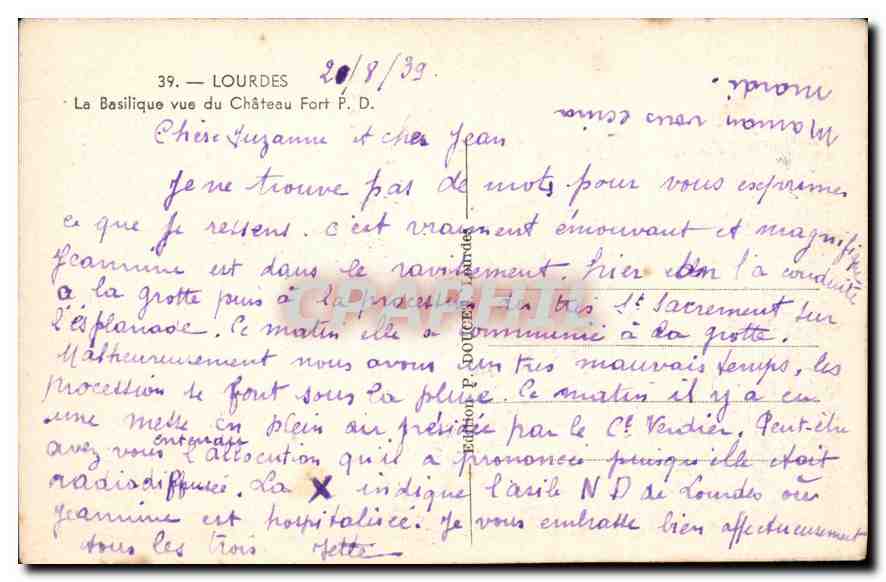 39. — LOURDES 21/8/39
La Basilique vue du Château Fort P. D.
Maman vous écrira
mardi.
Chère Suzanne et cher Jean
Je ne trouve pas de mots pour vous exprimer
ce que je ressens. C'est vraiment émouvant et magnifique
Jeannine est dans le ravissement. hier on l'a conduite
à la grotte puis à la procession du très St Sacrement sur
l'esplanade. Ce matin elle a communié à la grotte.
Malheureusement nous avons un très mauvais temps, les
procession se font sous la pluie. Ce matin il y a eu
une messe en plein air présidée par le Cl Verdier. Peut-être
avez vous entendu l'allocution qu'il a prononcée puisqu'elle était
radiodiffusée. La X indique l'asile N D de Lourdes où
Jeannine est hospitalisée. Je vous embrasse bien affectueusement
tous les trois Jette
Edition P. DOUCET, Lourdes
CPARTIL